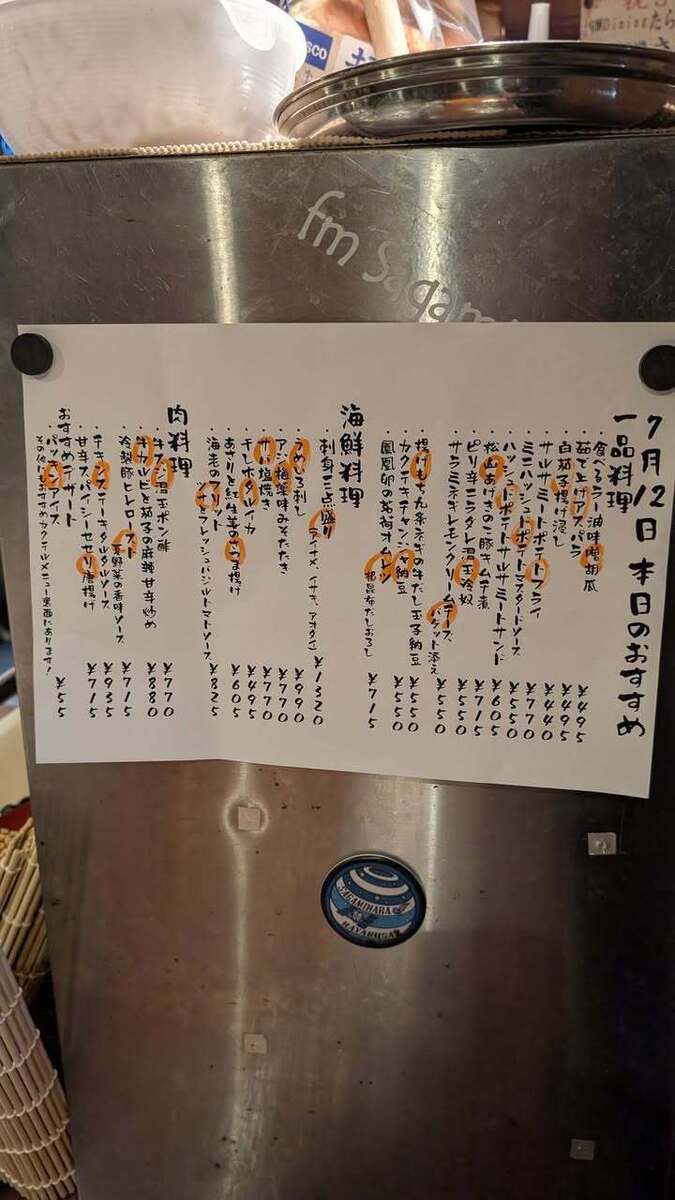 7月12日 本日のおすすめ
一品料理
・食べるラー油味噌胡瓜 ¥495
・茹で上げアスパラ ¥495
・白茄子揚げ浸し ¥440
・サルサミートポテトフライ ¥770
・ミニハッシュドポテトマスタードソース ¥550
・ハッシュドポテトサルサミートサンド ¥605
・松山あげきのこ豚キムチ煮 ¥715
・ピリ辛ニラダレ温玉冷奴 ¥550
・サラミネギレモンクリームチーズ
バケット添え ¥550
・揚げもち九条ネギの牛だし玉子納豆
・カクテキチャンジャ納豆 ¥550
・鳳凰卵の茗荷オムレツ
根昆布だしおろし ¥715
海鮮料理
・刺身三点盛り
(アイナメ、イサキ、アオダイ) ¥1320
・うめいろ刺し ¥990
・アジ梅薬味みそたたき ¥770
・サバ塩焼き ¥770
・干しホタルイカ ¥495
・あさりと紅生姜のさつま揚げ ¥605
・海老のフリット
ツナとフレッシュバジルトマトソース ¥825
肉料理
・牛スジ温玉ポン酢 ¥770
・牛カルビと茄子の麻辣甘辛炒め ¥880
・冷製豚ヒレロースト
夏野菜の香味ソース ¥715
・チキンステーキタルタルソース ¥935
・甘辛スパイシーセセリ唐揚げ ¥715
おすすめデザート
・パッアイス ¥55
その他にもおすすめカクテルメニュー裏面にあります!
fm Sagami
SAGAMIHARA
HAYABUSA
sco
Dining たら